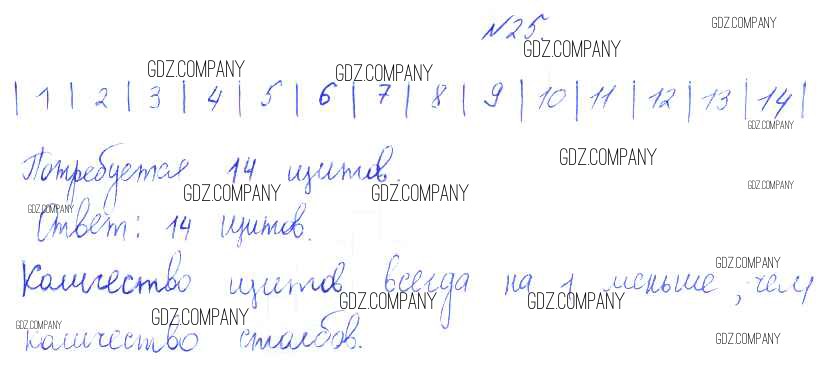 №25.
GDZ.COMPANY
GDZ.COMPANY
GDZ.COMPANY GDZ.COMPANY
| 1 | 2 | 3 | 4 | 5 | 6 | 7 | 8 | 9 | 10 | 11 | 12 | 13 | 14 |
GDZ.COMPANY
Потребуется 14 щитов.
GDZ.COMPANY
GDZ.COMPANY GDZ.COMPANY GDZ.COMPANY
GDZ.COMPANY
Ответ: 14 щитов.
GDZ.COMPANY
Количество щитов всегда на 1 меньше, чем
GDZ.COMPANY GDZ.COMPANY
GDZ.COMPANY GDZ.COMPANY
количество столбов.
GDZ.COMPANY